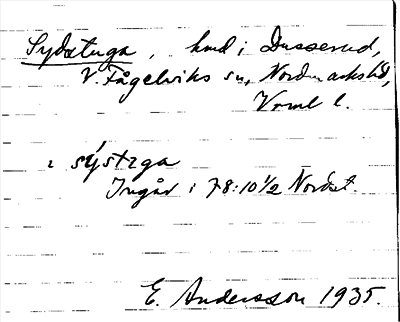 Sydstuga, hmd i Dusserud,
V. Fågelviks sn, Nordmarks hd,
Vrml l.
i sýstɤga
Ingår i 78:10½ Nordst.
E. Andersson 1935.